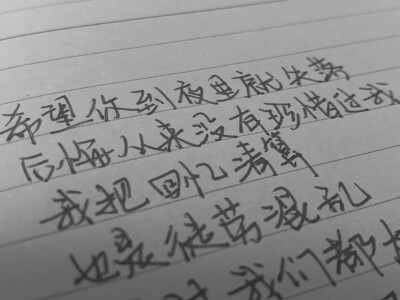 希望你到夜里就失落
后悔从来没有珍惜过我
我把回忆清算
也是徒劳混乱
我们都